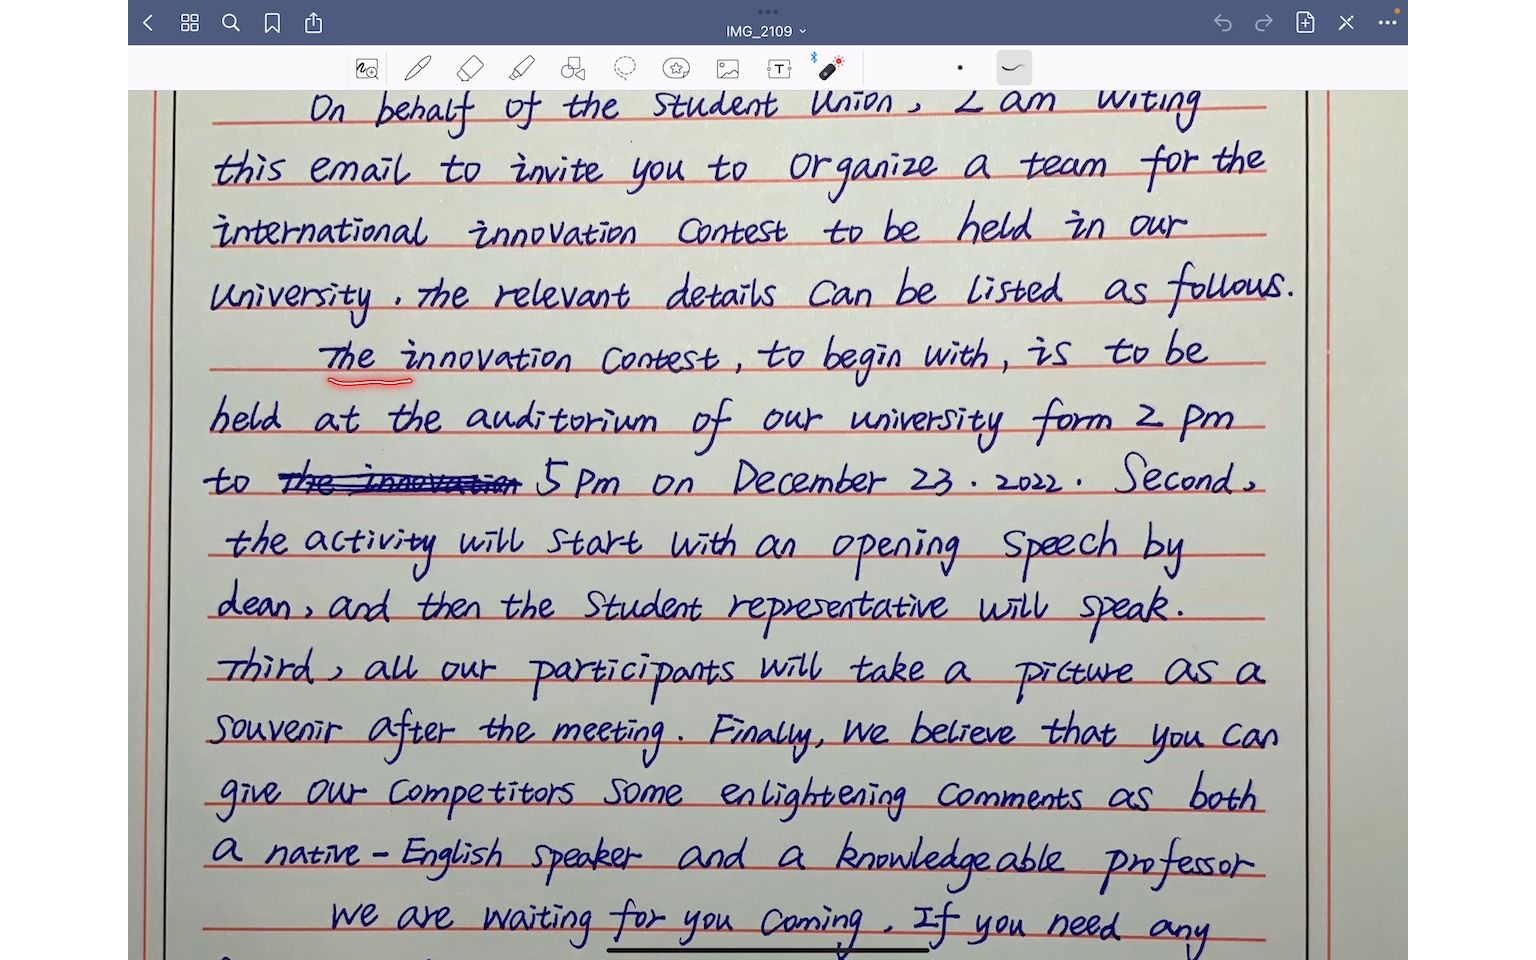 IMG_2109
On behalf of the Student Union, I am witing
this email to invite you to organize a team for the
international innovation Contest to be held in our
University. The relevant details can be listed as follows.
The innovation Contest, to begin with, is to be
held at the auditorium of our university form 2 pm
to the innovation 5 pm on December 23. 2022. Second,
the activity will start with an opening speech by
dean, and then the student representative will speak.
Third, all our participants will take a picture as a
souvenir after the meeting. Finally, we believe that you can
give our competitors some enlightening comments as both
a native-English speaker and a knowledgeable professor
We are waiting for you coming. If you need any